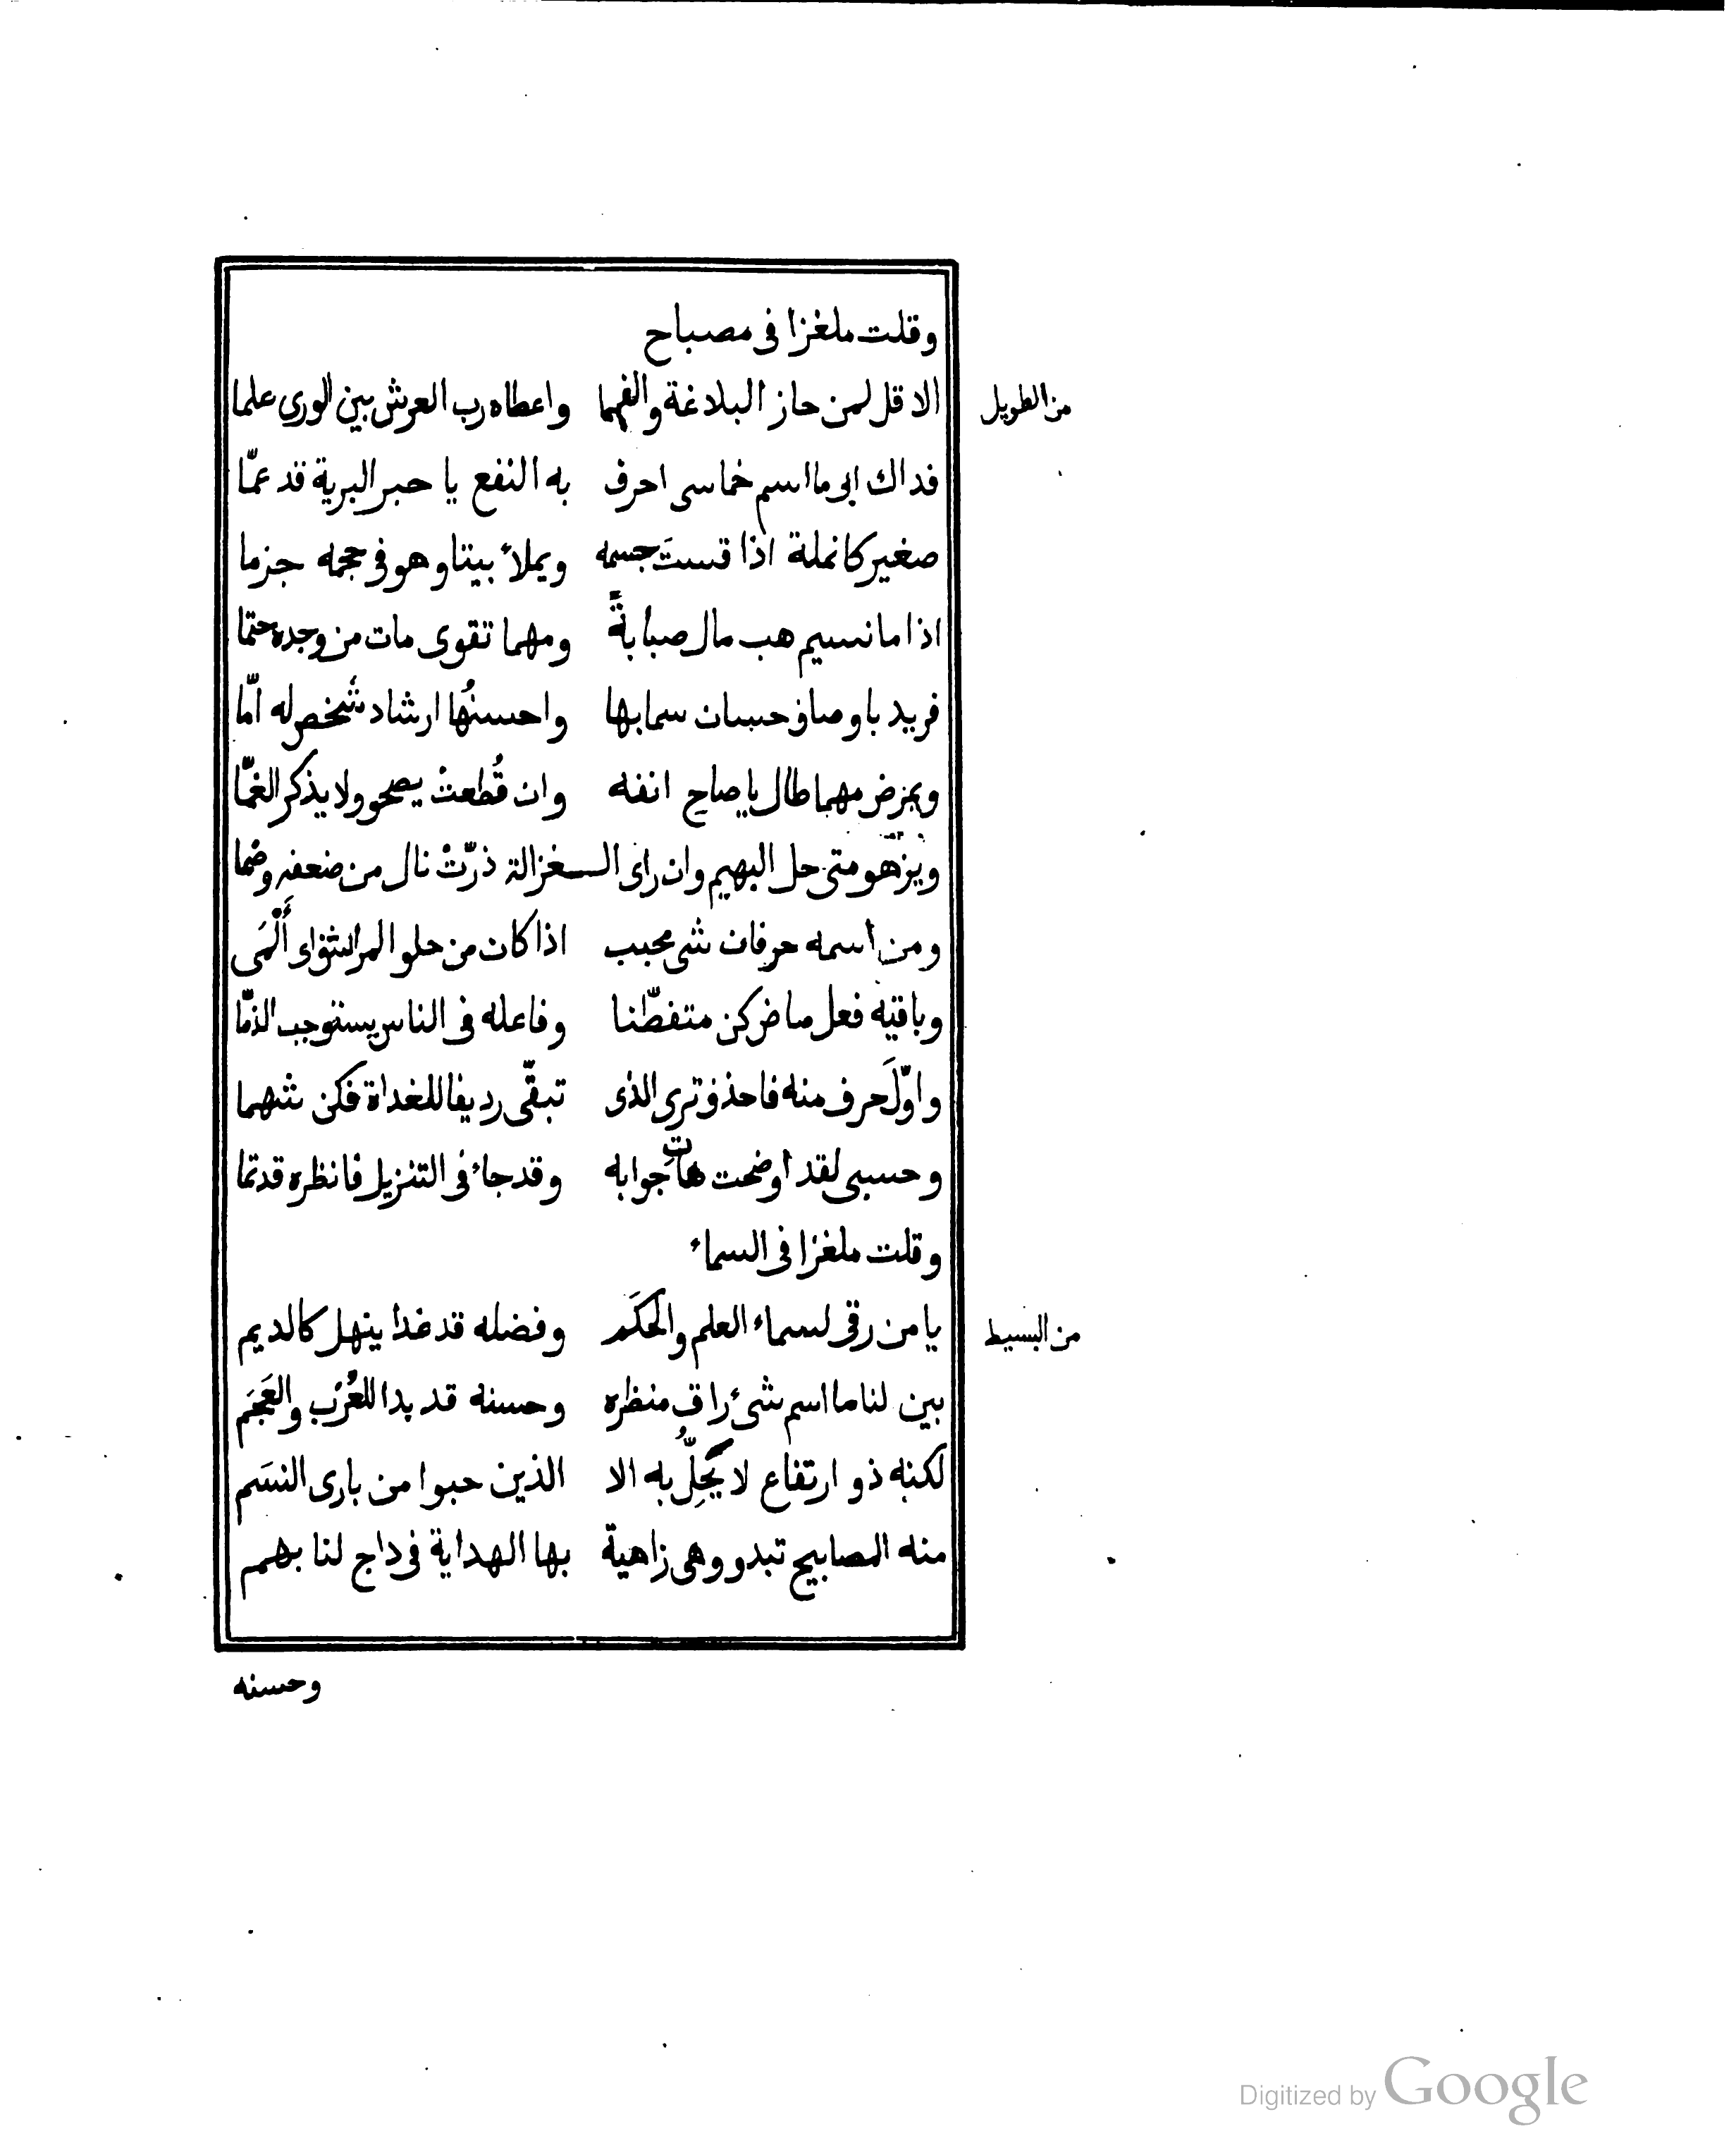 وقلت ملغزا فى مصباح
من الطويل
الا قل لمن حاز البلاغة والفهما واعطاه رب العرش بين الورى علما
فداك ابى ما اسم خماسى احرف به النفع يا حبر البرية قد عمّا
صغير كانملة اذا قستَ جسمه ويملأ بيتا وهو فى حجمه جزما
اذا ما نسيم هب مال صبابةً ومهما تقوى مات من وجده حتما
فريد باوصاف حسان سما بها واحسنُها ارشاد شخص له امّا
ويمرض مهما طال يا صاح انفه وان قُطعتْ يصحو ولا يذكر الغمّا
ويزهو متى حل البهيم وان راى الـغزالة ذرّتْ نال من ضعفه وضما
ومن اسمه حرفان شى محبب اذا كان من حلو المراشف اى أَلْمَى
وباقيه فعل ماض كن متفطّنا وفاعله فى الناس يستوجب الذمّا
واوّلَ حرف منه فاحذف ترى الذى تبقّى رديفا للغداة فكن شهما
وحسبى لقد اوضحت هاتِ جوابه وقد جاء فى التنزيل فانظره قدتما
وقلت ملغزا فى السماء
من البسيط
يا من رقى لسماء العلم والحكَم وفضله قد غدا ينهل كالديم
بين لنا ما اسم شىء راق منظره وحسنه قد بدا للعُرْب والعَجَم
لكنه ذو ارتفاع لا يَحِلُّ به الا الذين حبوا من بارى النسَم
منه المصابيح تبدو وهى زاهية بها الهداية فى داج لنا بهم
وحسنه
Digitized by Google